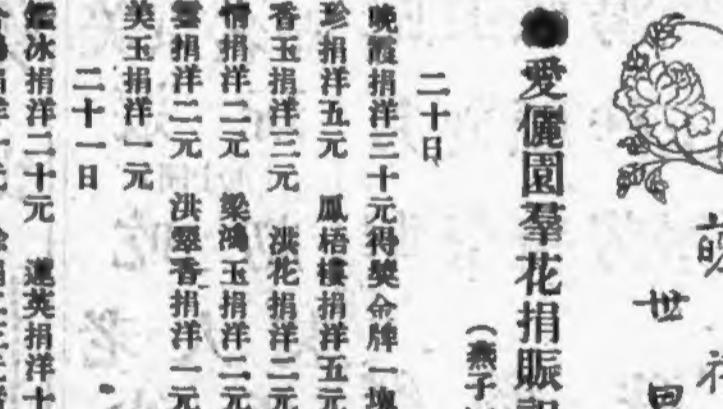 世界
●愛儷園羣花捐賑
(燕子
二十日
晚霞捐洋三十元得獎金牌一塊
珍捐洋五元　鳳梧樓捐洋五元
香玉捐洋三元　洪花捐洋二元
情捐洋二元　梁鴻玉捐洋二元
雲捐洋二元　洪翠香捐洋一元
美玉捐洋一元
二十一日
冰捐洋二十元　蓮英捐洋十